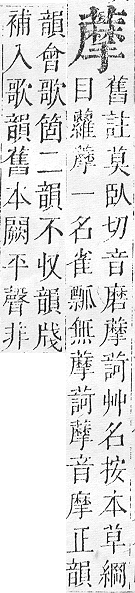 藦
舊註莫臥切音磨藦艸名按本草綱
目蘿藦一名雀瓢無藦藦音摩正韻
韻會歌箇二韻不收韻牋
補入歌韻舊本闕平聲非